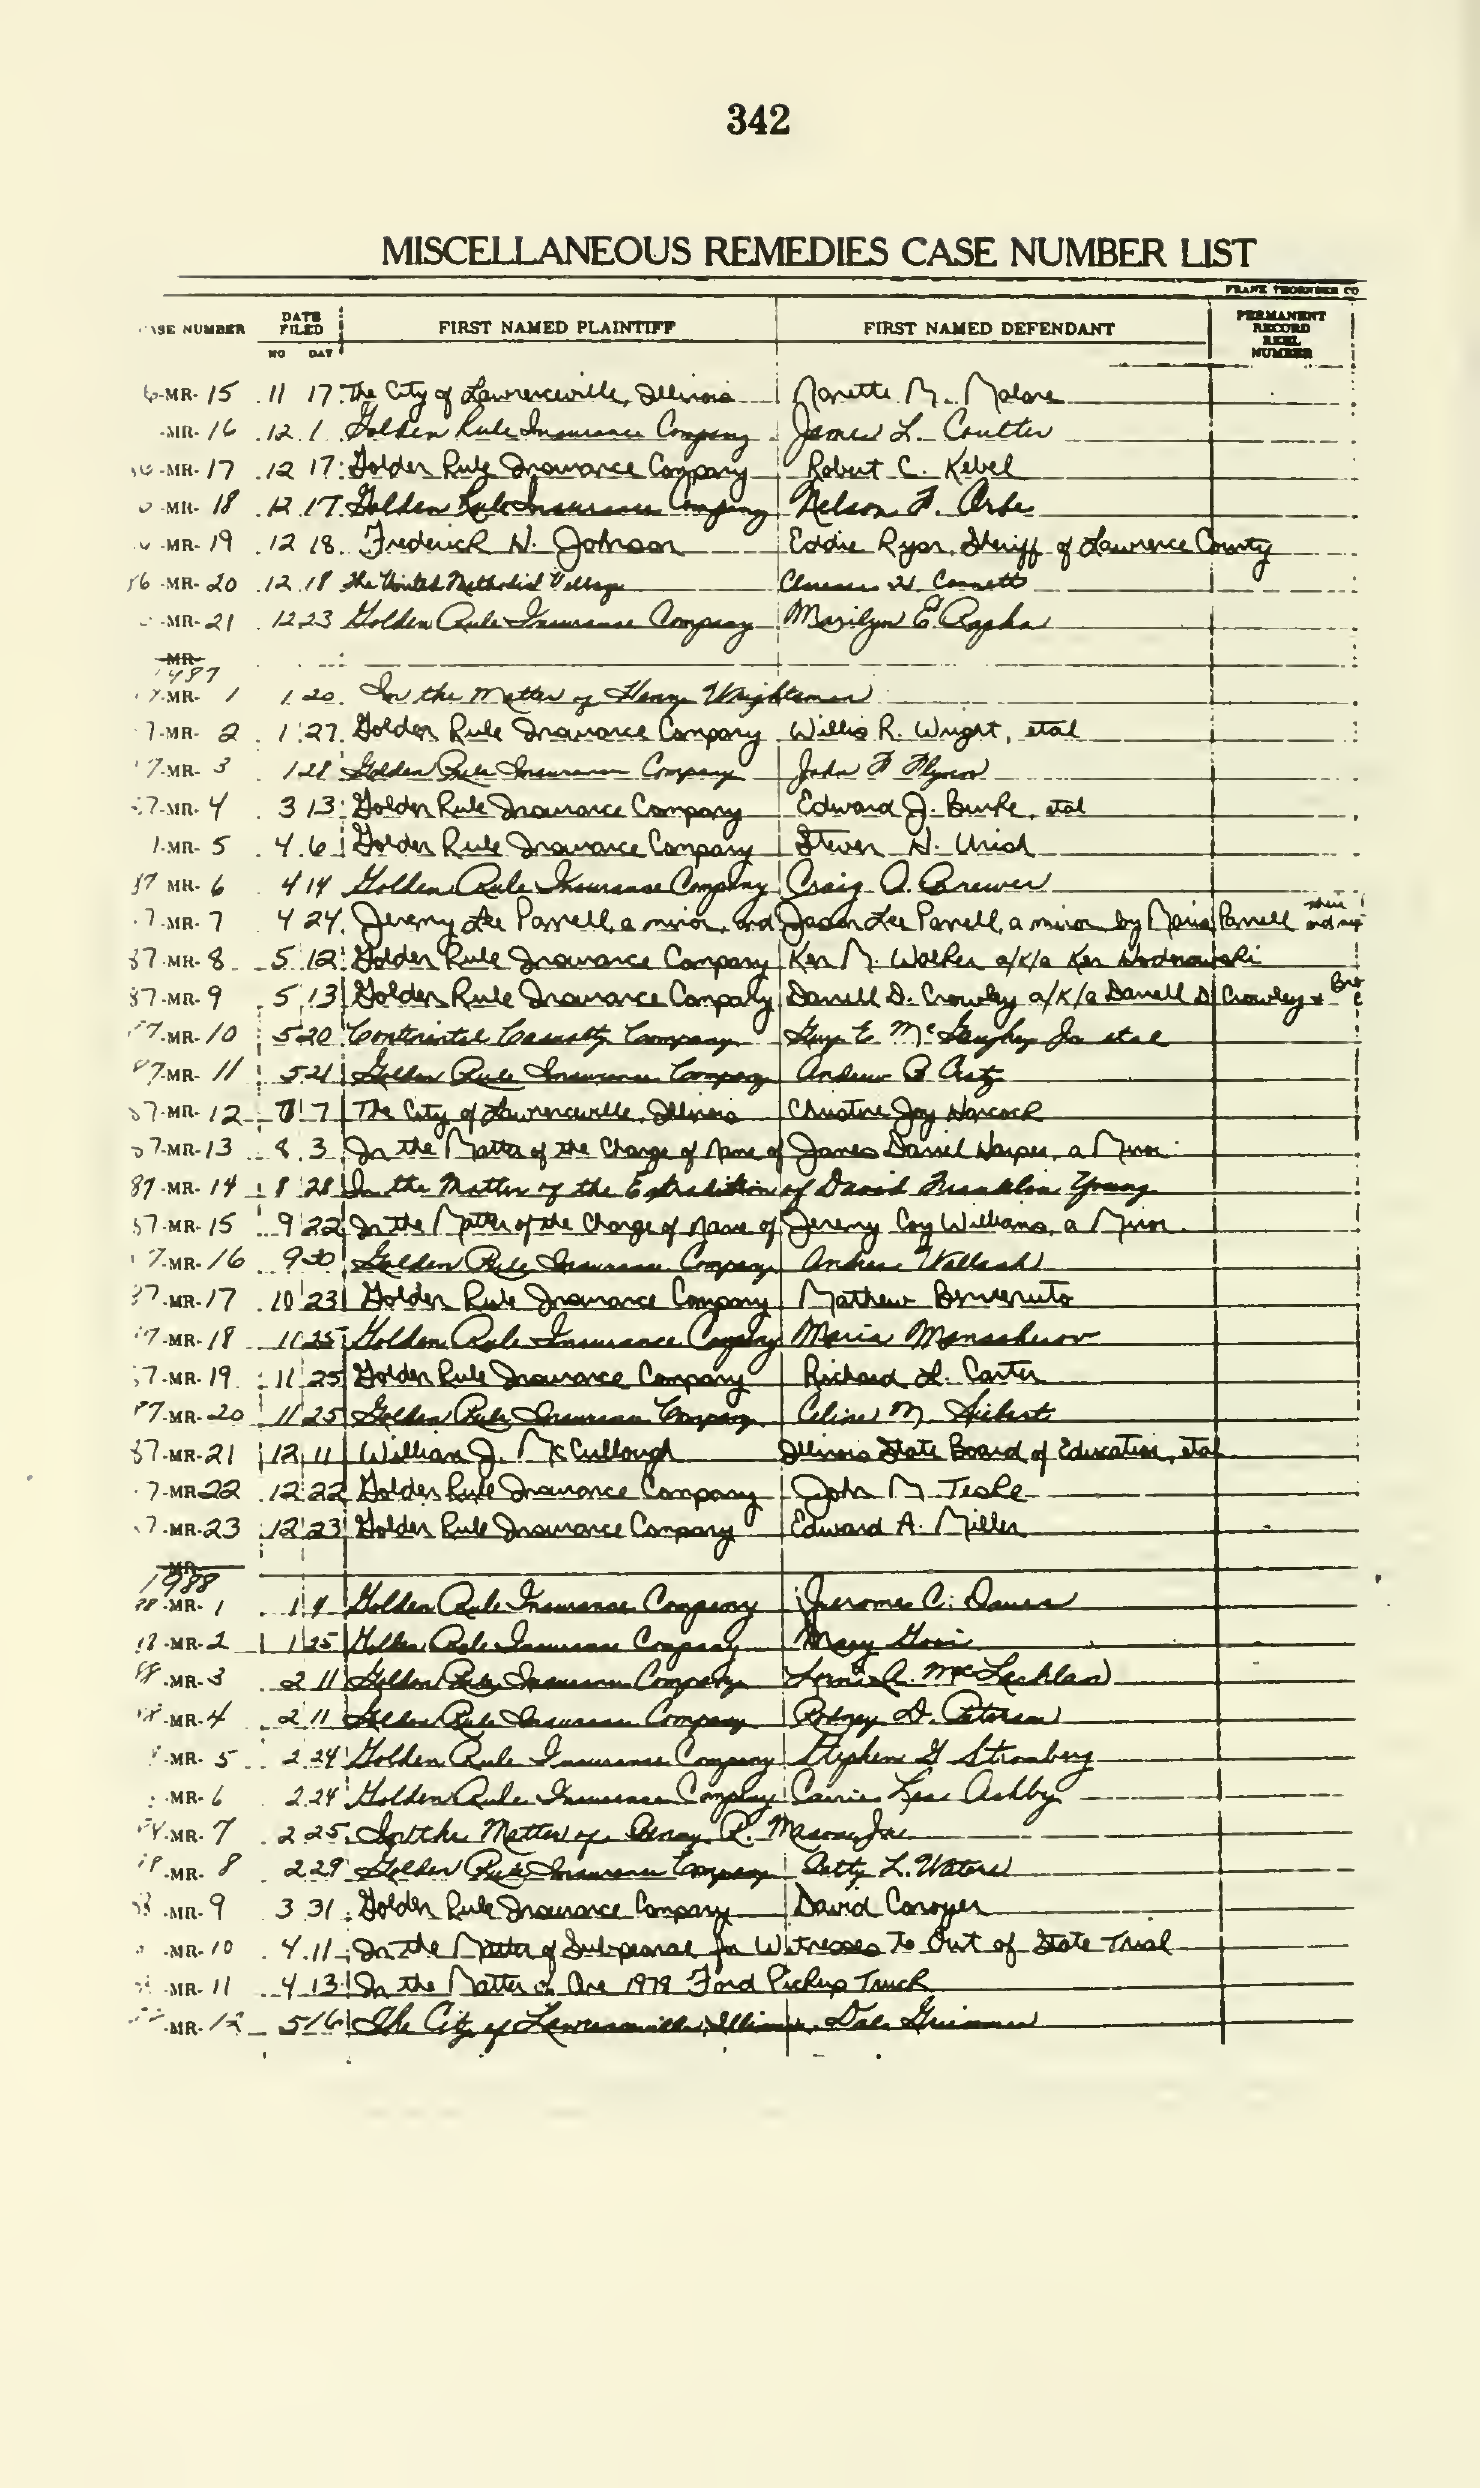 342
MISCELLANEOUS REMEDIES CASE NUMBER LIST
FRANK THORNBER CO
ASE NUMBER DATE FILED FIRST NAMED PLAINTIFF FIRST NAMED DEFENDANT PERMANENT RECORD REEL NUMBER
MO DAY
6-MR-15 11 17 The City of Lawrenceville, Illinois Nanette M. Malone
-MR-16 12 1 Golden Rule Insurance Company James L. Coulter
86-MR-17 12 17 Golden Rule Insurance Company Robert C. Kebel
-MR-18 12 17 Golden Rule Insurance Company Nelson F. Orbe
-MR-19 12 18 Frederick N. Johnson Eddie Ryan, Sheriff of Lawrence County
86-MR-20 12 18 The United Methodist Village Clarence H.
-MR-21 12 23 Golden Rule Insurance Company Marilyn E.
MR
1987
7-MR-1 1 20 In the Matter of Henry Wrightsman
7-MR-2 1 27 Golden Rule Insurance Company Willis R. Wright, etal
7-MR-3 1 28 Golden Rule Insurance Company John F Flynn
7-MR-4 3 13 Golden Rule Insurance Company Edward J. Burke, etal
-MR-5 4 6 Golden Rule Insurance Company Steven H. Urish
87 MR-6 4 14 Golden Rule Insurance Company Craig A. Brewer
7-MR-7 4 24 Jeremy Lee Parrell, a minor, and Jason Lee Parrell, a minor by Parrell their and next
87-MR-8 5 12 Golden Rule Insurance Company Ken M. Walker a/k/a Ken
87-MR-9 5 13 Golden Rule Insurance Company Darrell D. Crowley a/k/a Darrell D Crowley &
87-MR-10 5 20 Continental Casualty Company Guy E McGaughey Jr etal
87-MR-11 5 21 Golden Rule Insurance Company Andrew B
87-MR-12 7 7 The City of Lawrenceville, Illinois Christine Joy Hancock
87-MR-13 8 3 In the Matter of the Change of Name of James Daniel Harper, a Minor
87-MR-14 8 28 In the Matter of the Extradition of David Franklin Young
87-MR-15 9 22 In the Matter of the Change of Name of Jeremy Coy Williams, a Minor.
7-MR-16 9 30 Golden Rule Insurance Company Andrew Wallash
87-MR-17 10 23 Golden Rule Insurance Company Mathew Benvenuto
87-MR-18 11 25 Golden Rule Insurance Company Maria
87-MR-19 11 25 Golden Rule Insurance Company Richard L. Carter
87-MR-20 11 25 Golden Rule Insurance Company Celine M. Siebert
87-MR-21 12 11 William J. McCullough Illinois State Board of Education, etal
7-MR-22 12 22 Golden Rule Insurance Company John M Teske
7-MR-23 12 23 Golden Rule Insurance Company Edward A. Miller
MR
1988
88-MR-1 1 4 Golden Rule Insurance Company Jerome C. Davis
88-MR-2 1 25 Golden Rule Insurance Company Mary
88-MR-3 2 11 Golden Rule Insurance Company A. McLachlan
88-MR-4 2 11 Golden Rule Insurance Company Rodney D. Peterson
-MR-5 2 24 Golden Rule Insurance Company Stephen G Stromberg
-MR-6 2 24 Golden Rule Insurance Company Carrie Lee Ashby
88-MR-7 2 25 In the Matter of R. Mason, Jr.
88-MR-8 2 29 Golden Rule Insurance Company Patty L. Waters
88-MR-9 3 31 Golden Rule Insurance Company David Conoyer
-MR-10 4 11 In the Matter of Subpoenas for Witnesses to Out of State Trial
-MR-11 4 13 In the Matter of One 1979 Ford Pickup Truck
-MR-12 5 16 The City of Lawrenceville, Illinois, Dale